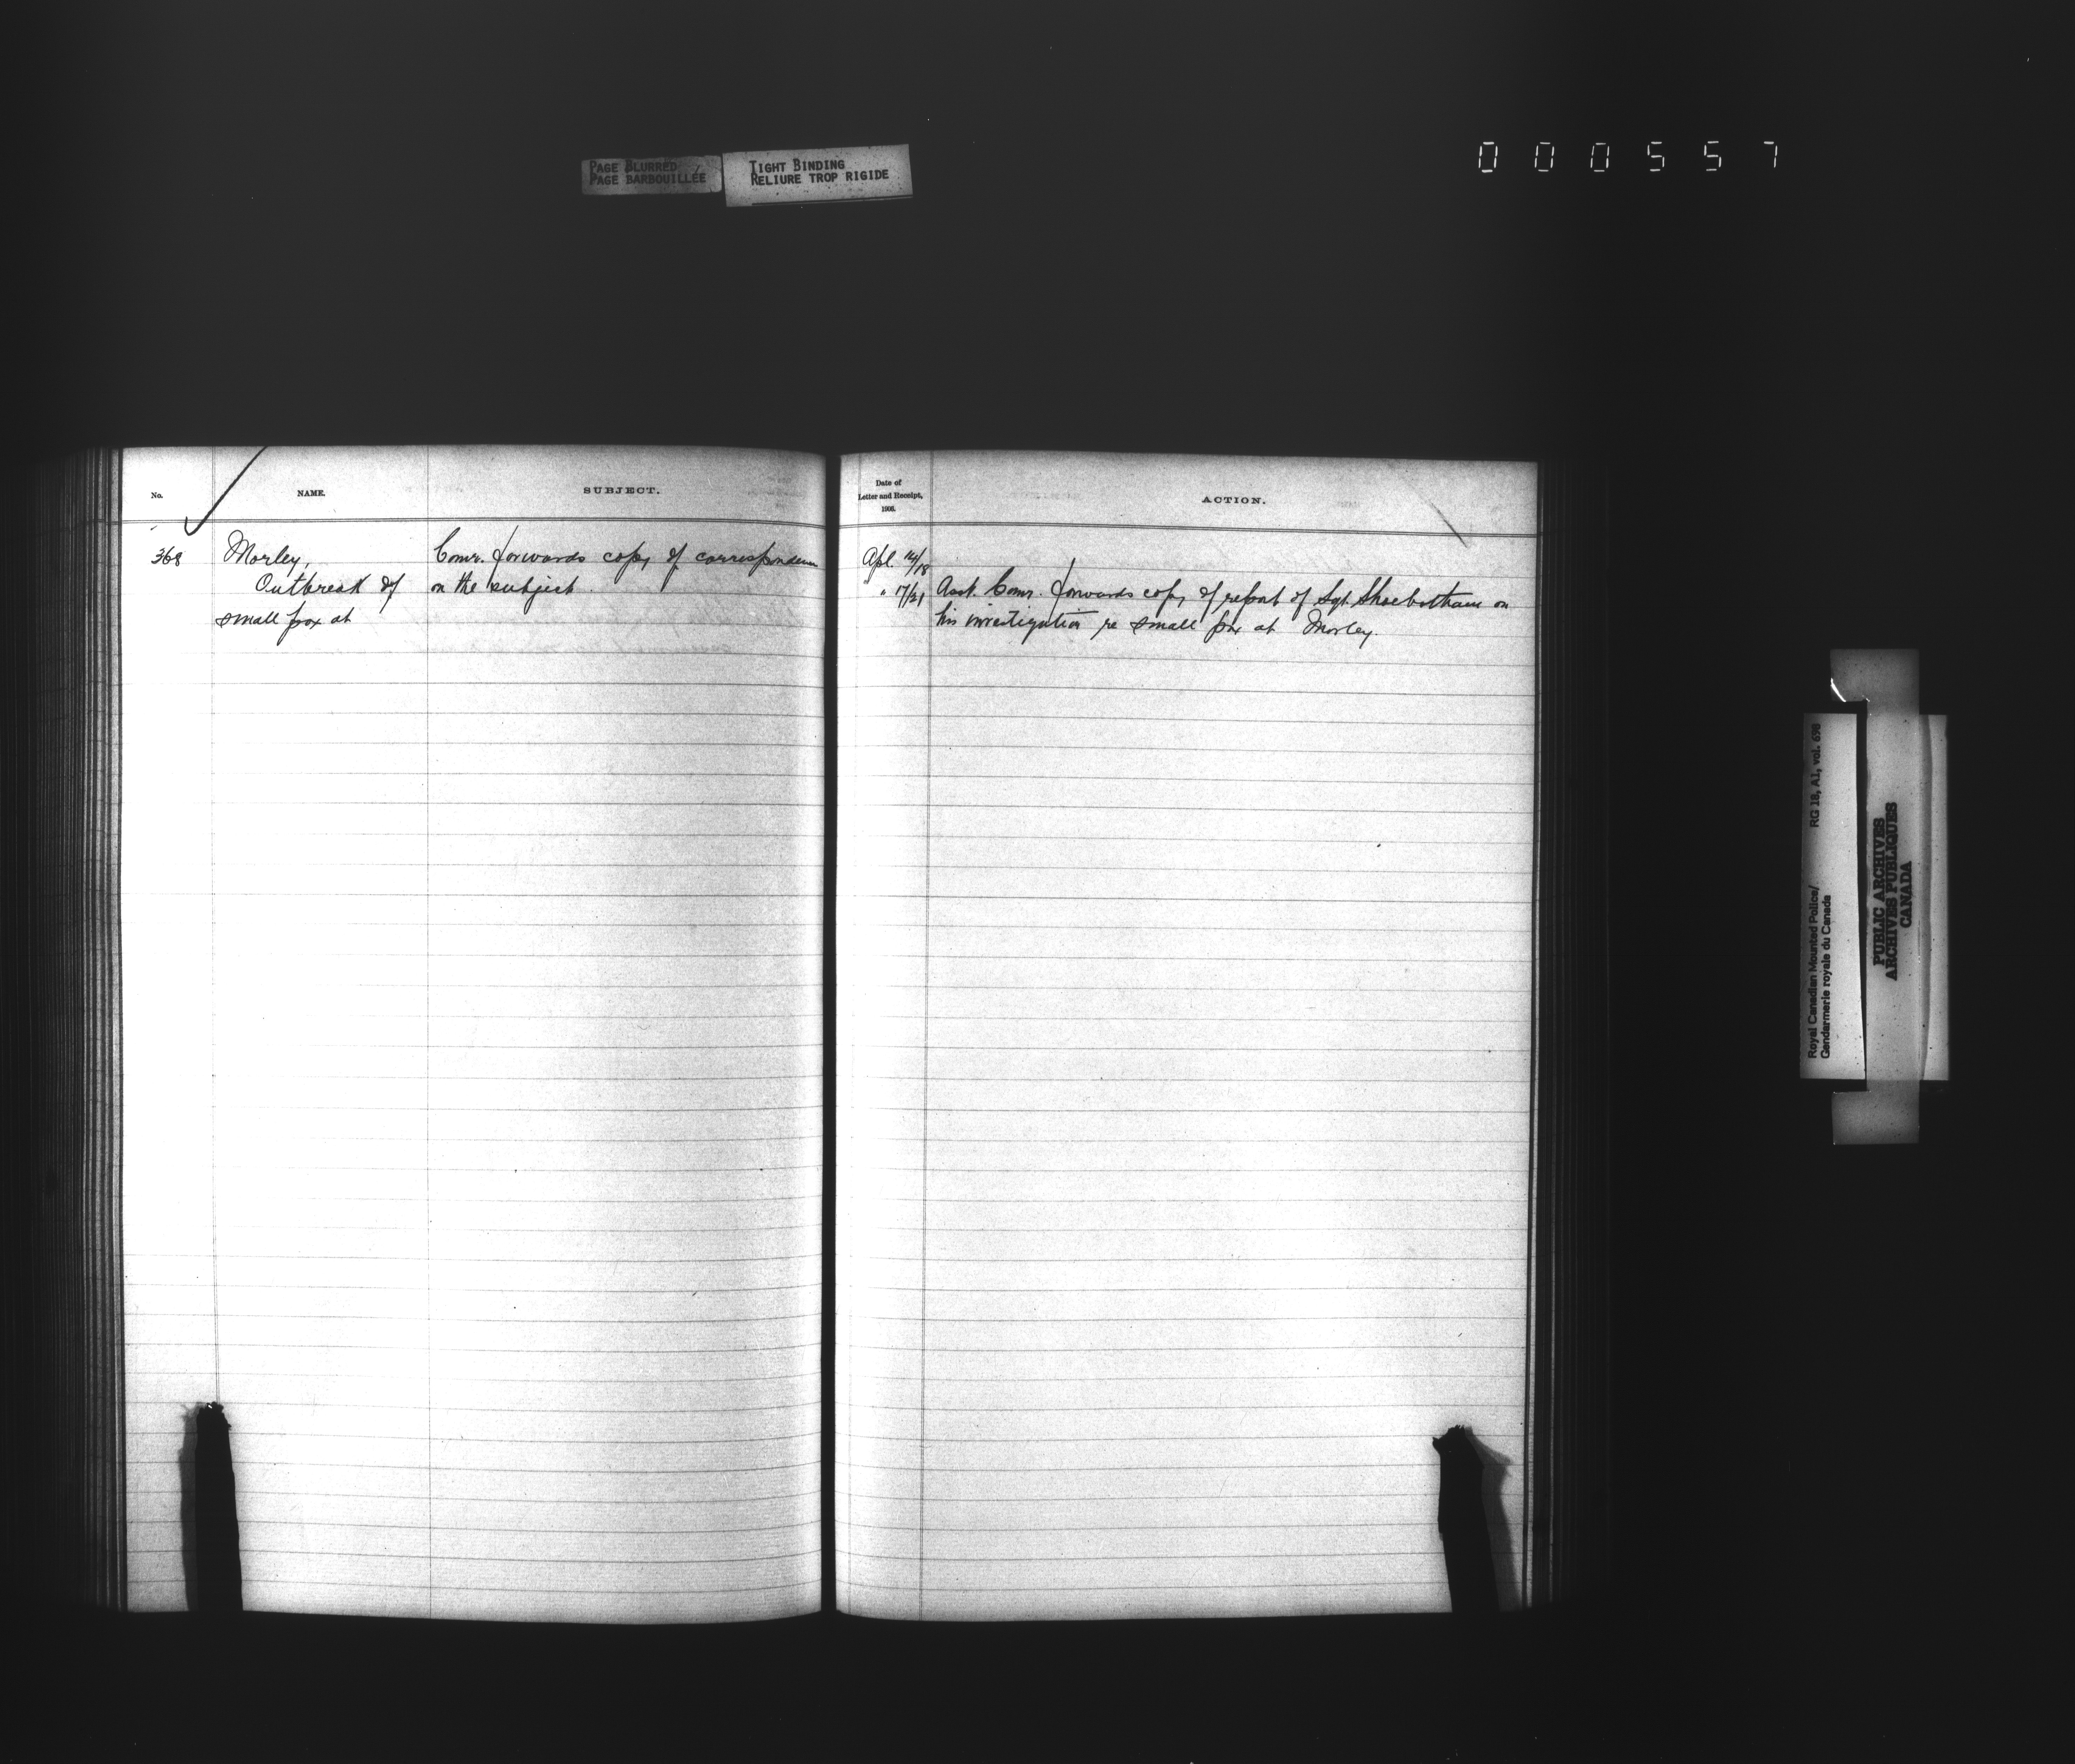 PAGE BLURRED
PAGE BARBOUILLÉE
TIGHT BINDING
RELIURE TROP RIGIDE
000557
No.
NAME.
SUBJECT.
368
Morley,
Outbreak of
small pox at
Comr. forwards copy of correspondence
on the subject.
Date of
Letter and Receipt,
1906.
ACTION.
Apl. 14/18
" 17/21
Asst. Comr. forwards copy of report of Sgt. Shoebotham on
his investigation re small pox at Morley.
Royal Canadian Mounted Police/
Gendarmerie royale du Canada
RG 18, A1, vol. 698
PUBLIC ARCHIVES
ARCHIVES PUBLIQUES
CANADA